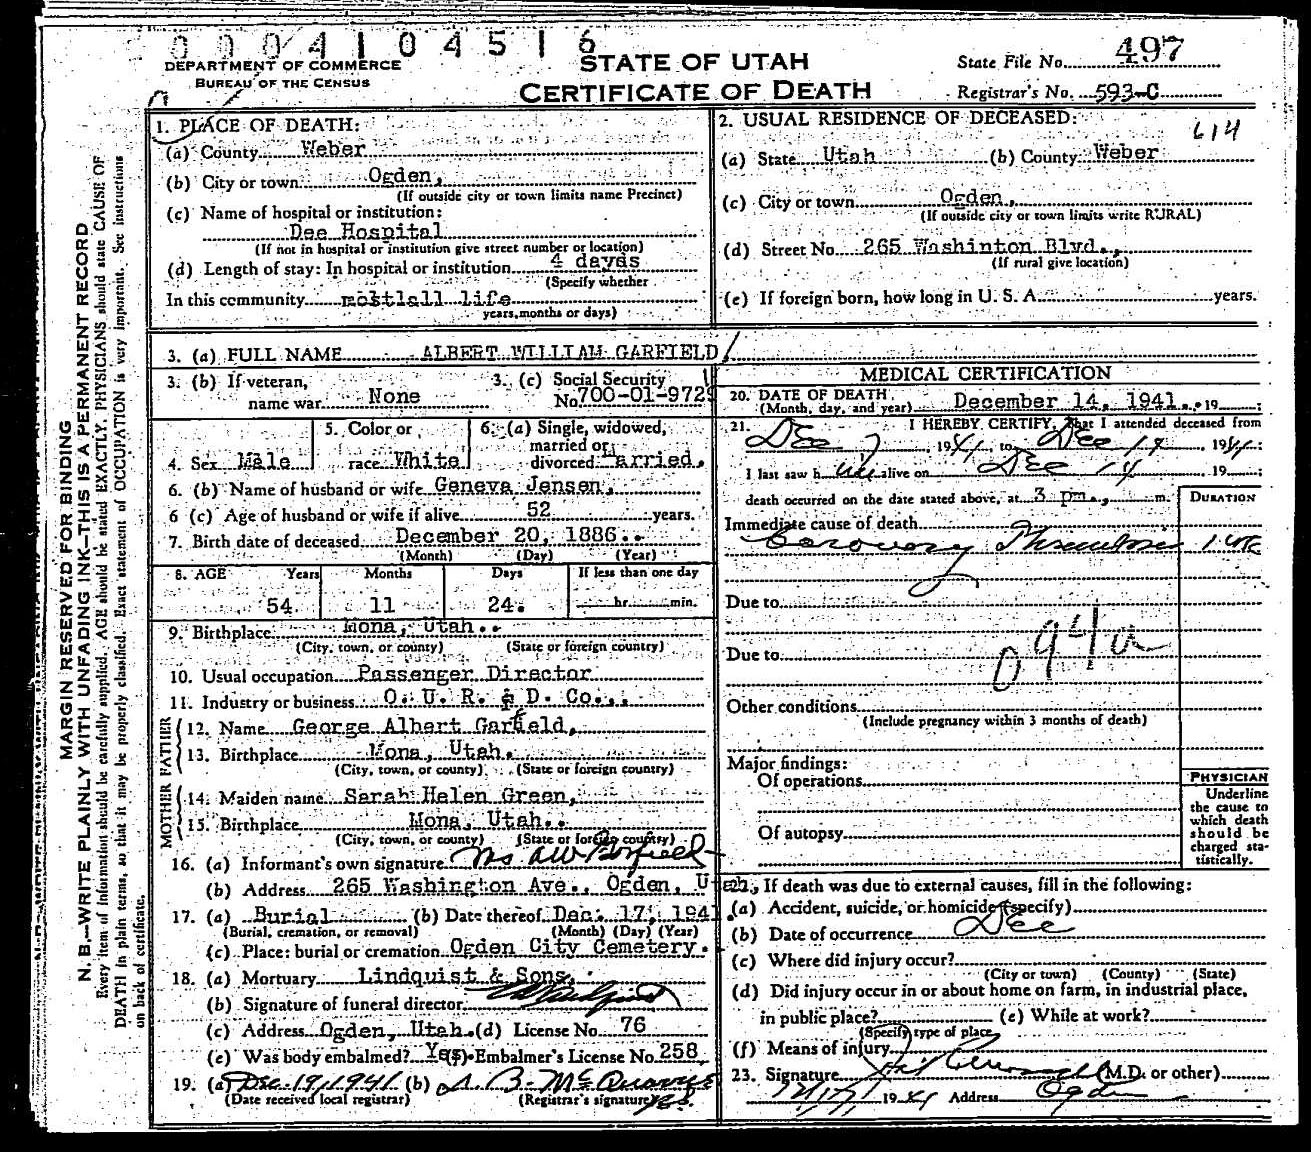 0004104516
DEPARTMENT OF COMMERCE
BUREAU OF THE CENSUS
STATE OF UTAH
CERTIFICATE OF DEATH
State File No. 497
Registrar's No. 593-C
1. PLACE OF DEATH:
(a) County Weber
(b) City or town Ogden,
(If outside city or town limits name Precinct)
(c) Name of hospital or institution:
Dee Hospital
(If not in hospital or institution give street number or location)
(d) Length of stay: In hospital or institution 4 dayds
(Specify whether
In this community mostlall life
years, months or days)
2. USUAL RESIDENCE OF DECEASED:
614
(a) State Utah (b) County Weber
(c) City or town Ogden,
(If outside city or town limits write RURAL)
(d) Street No. 265 Washinton Blvd.,
(If rural give location)
(e) If foreign born, how long in U. S. A. years.
3. (a) FULL NAME ALBERT WILLIAM GARFIELD
3. (b) If veteran, name war None
3. (c) Social Security No. 700-01-9729
4. Sex Male
5. Color or race White
6. (a) Single, widowed, married or divorced Married.
6. (b) Name of husband or wife Geneva Jensen,
6 (c) Age of husband or wife if alive 52 years.
7. Birth date of deceased December 20, 1886..
(Month) (Day) (Year)
8. AGE Years Months Days If less than one day
54 11 24. hr. min.
9. Birthplace Mona, Utah..
(City, town, or county) (State or foreign country)
10. Usual occupation Passenger Director
11. Industry or business O. U. R. & D. Co...
FATHER
12. Name George Albert Garfield,
13. Birthplace Mona, Utah.
(City, town, or county) (State or foreign country)
MOTHER
14. Maiden name Sarah Helen Green,
15. Birthplace Mona, Utah..
(City, town, or county) (State or foreign country)
16. (a) Informant's own signature Mrs A W Garfield
(b) Address 265 Washington Ave., Ogden, Utah.
17. (a) Burial (b) Date thereof Dec. 17, 1941.
(Burial, cremation, or removal) (Month) (Day) (Year)
(c) Place: burial or cremation Ogden City Cemetery.
18. (a) Mortuary Lindquist & Sons,
(b) Signature of funeral director
(c) Address Ogden, Utah. (d) License No. 76
(e) Was body embalmed? Yes. (f) Embalmer's License No. 258
19. (a) Dec. 19, 1941 (b)
(Date received local registrar) (Registrar's signature)
MEDICAL CERTIFICATION
20. DATE OF DEATH December 14, 1941.. 19
(Month, day, and year)
21. I HEREBY CERTIFY, That I attended deceased from
Dec 1941 to Dec 14 1941
I last saw h im alive on Dec 14 19
death occurred on the date stated above, at 3 pm., m.
DURATION
Immediate cause of death
Coronary Thrombosis 1 wk
Due to
Due to
094a
Other conditions
(Include pregnancy within 3 months of death)
Major findings:
Of operations
Of autopsy
PHYSICIAN
Underline
the cause to
which death
should be
charged sta-
tistically.
22. If death was due to external causes, fill in the following:
(a) Accident, suicide, or homicide (specify)
(b) Date of occurrence Dec
(c) Where did injury occur?
(City or town) (County) (State)
(d) Did injury occur in or about home on farm, in industrial place,
in public place? (e) While at work?
(Specify type of place)
(f) Means of injury
23. Signature (M.D. or other)
1941 Address Ogden
MARGIN RESERVED FOR BINDING
N. B.—WRITE PLAINLY WITH UNFADING INK—THIS IS A PERMANENT RECORD
Every item of information should be carefully supplied. AGE should be stated EXACTLY. PHYSICIANS should state CAUSE OF
DEATH in plain terms, so that it may be properly classified. Exact statement of OCCUPATION is very important. See instructions
on back of certificate.